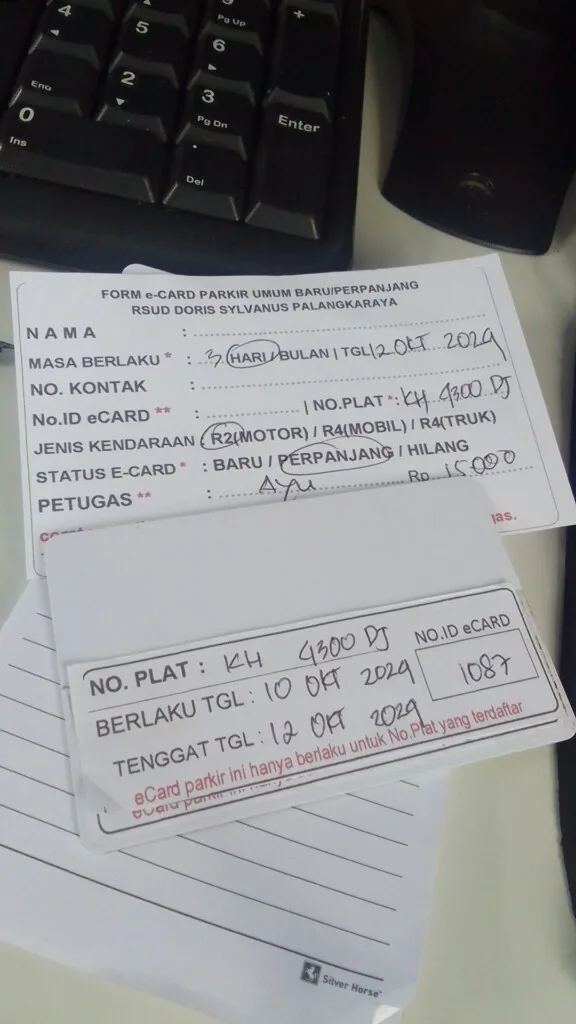 4
5
9
Pg Up
+
6
End
2
3
Pg Dn
Enter
0
Ins
.
Del
FORM e-CARD PARKIR UMUM BARU/PERPANJANG
RSUD DORIS SYLVANUS PALANGKARAYA
NAMA :
MASA BERLAKU * : 3 HARI/BULAN | TGL 12 OKT 2024
NO. KONTAK :
No.ID eCARD ** : | NO.PLAT *: KH 4300 DJ
JENIS KENDARAAN : R2(MOTOR) / R4(MOBIL) / R4(TRUK)
STATUS E-CARD * : BARU / PERPANJANG / HILANG
PETUGAS ** : AYU Rp 15000
NO. PLAT : KH 4300 DJ NO.ID eCARD
BERLAKU TGL : 10 OKT 2024 1087
TENGGAT TGL : 12 OKT 2024
eCard parkir ini hanya berlaku untuk No.Plat yang terdaftar
Silver Horse